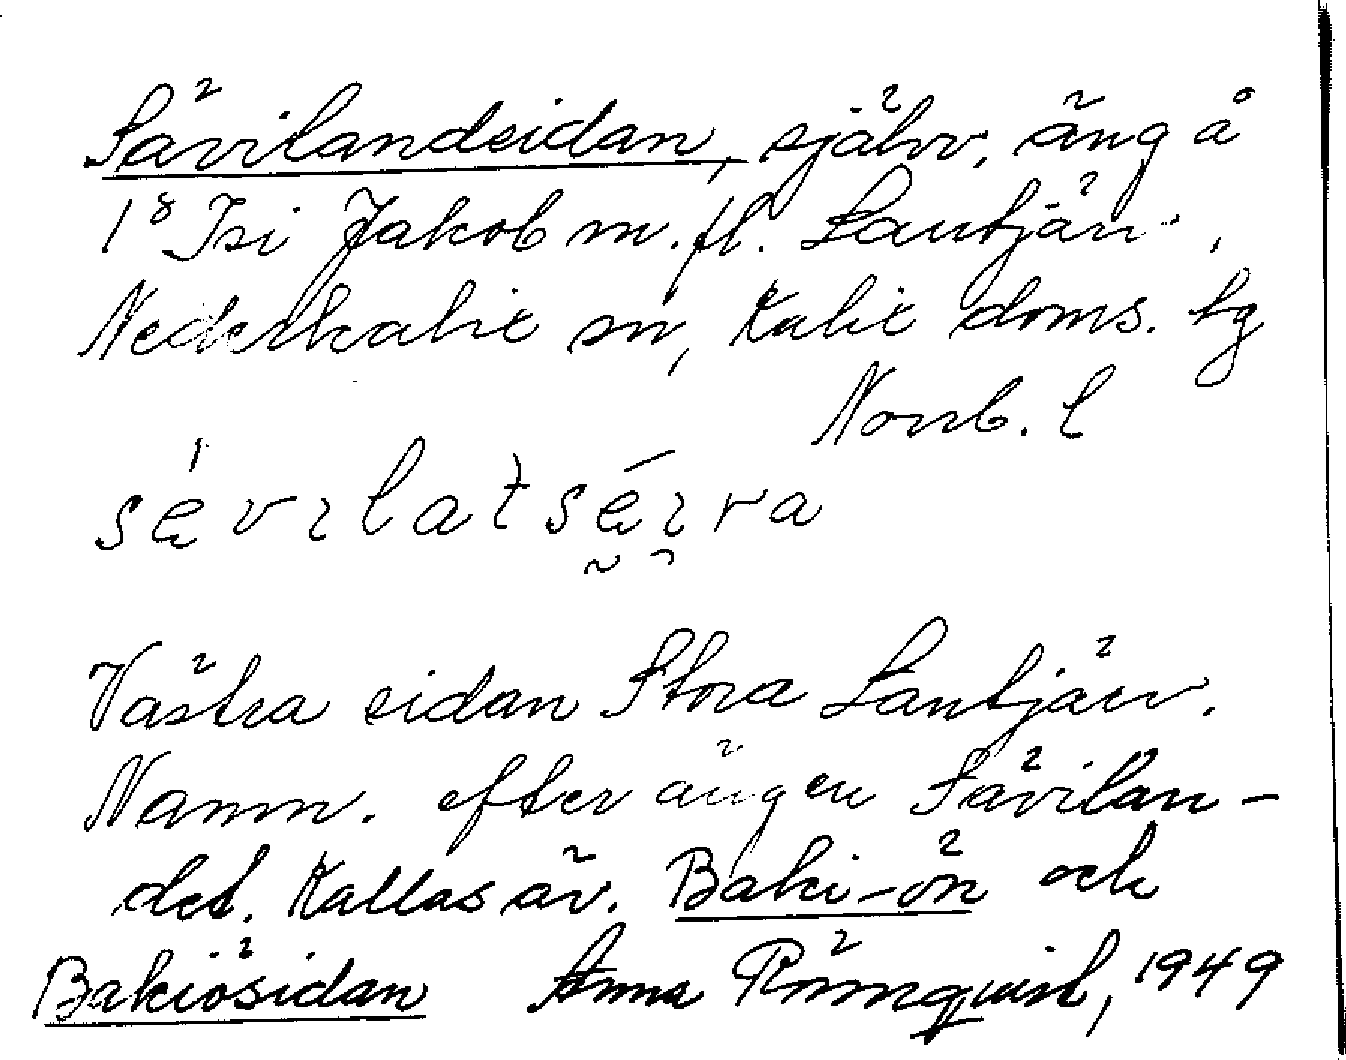 Sävilandsidan, självv. äng å
1⁸ Isi Jakob m. fl. Lantjärv,
Nederkalix sn, Kalix doms. tg
Norrb. l
Västra sidan Stora Lantjärv.
Namn. efter ängen Sävilan-
det. Kallas äv. Baki-ön och
Bakiösidan Anna Rönnquist, 1949